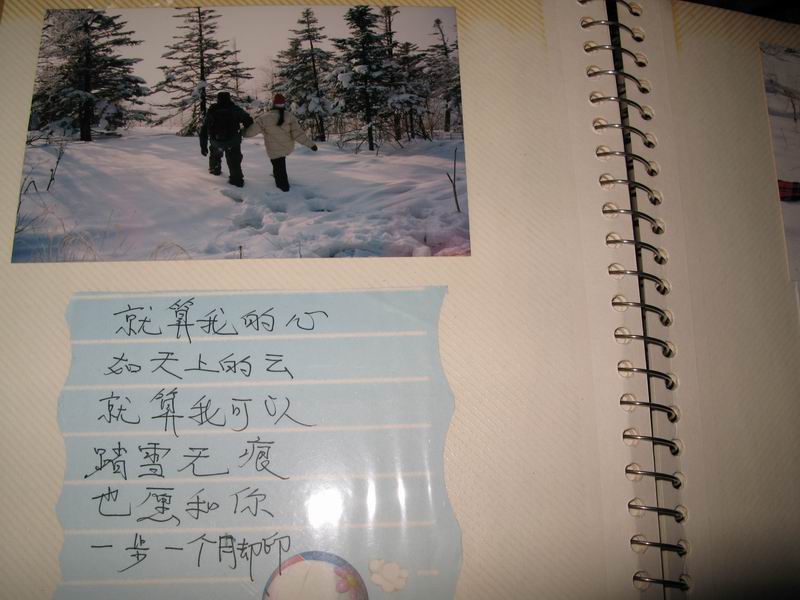 就算我的心
如天上的云
就算我可以
踏雪无痕
也愿和你
一步一个脚印